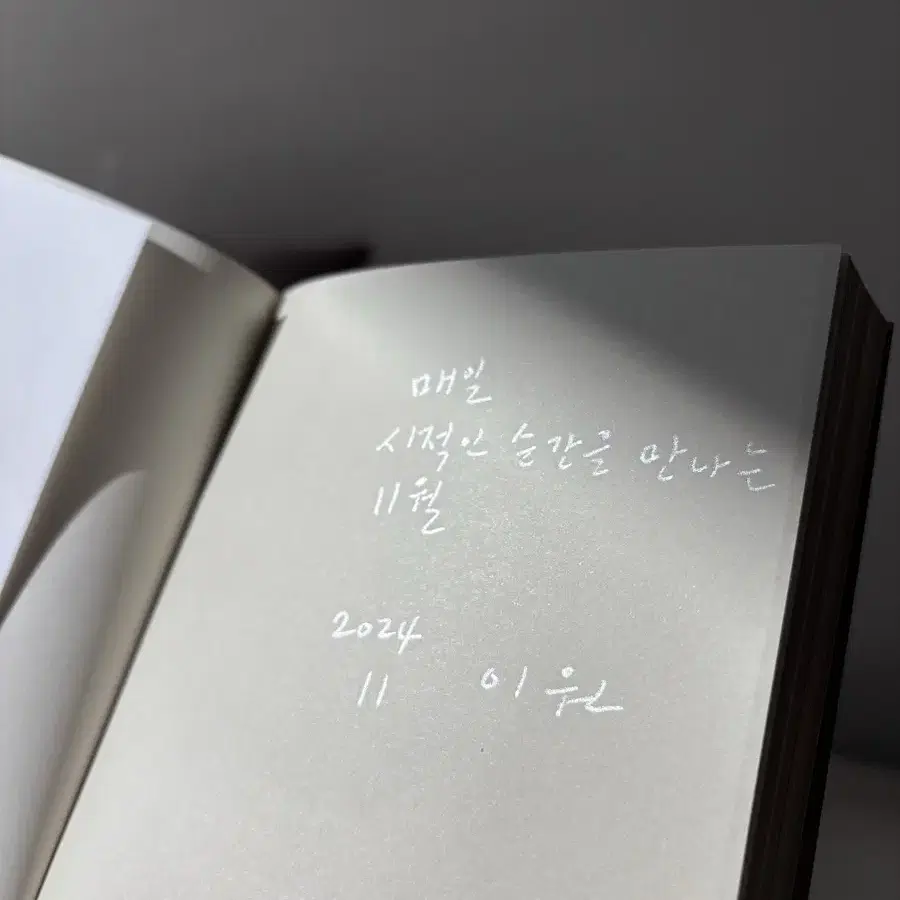 매일
시적인 순간을 만나는
11월
2024
11 이원